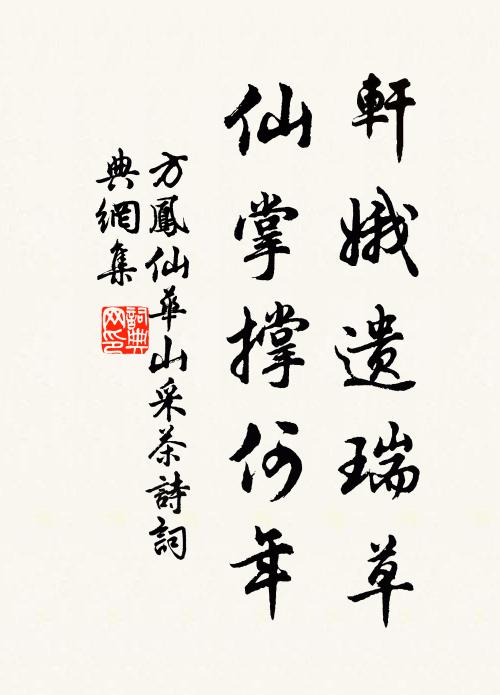 軒娥遺瑞草
仙掌撐何年
方鳳仙華山采茶詩詞
典網集
詞典
网印